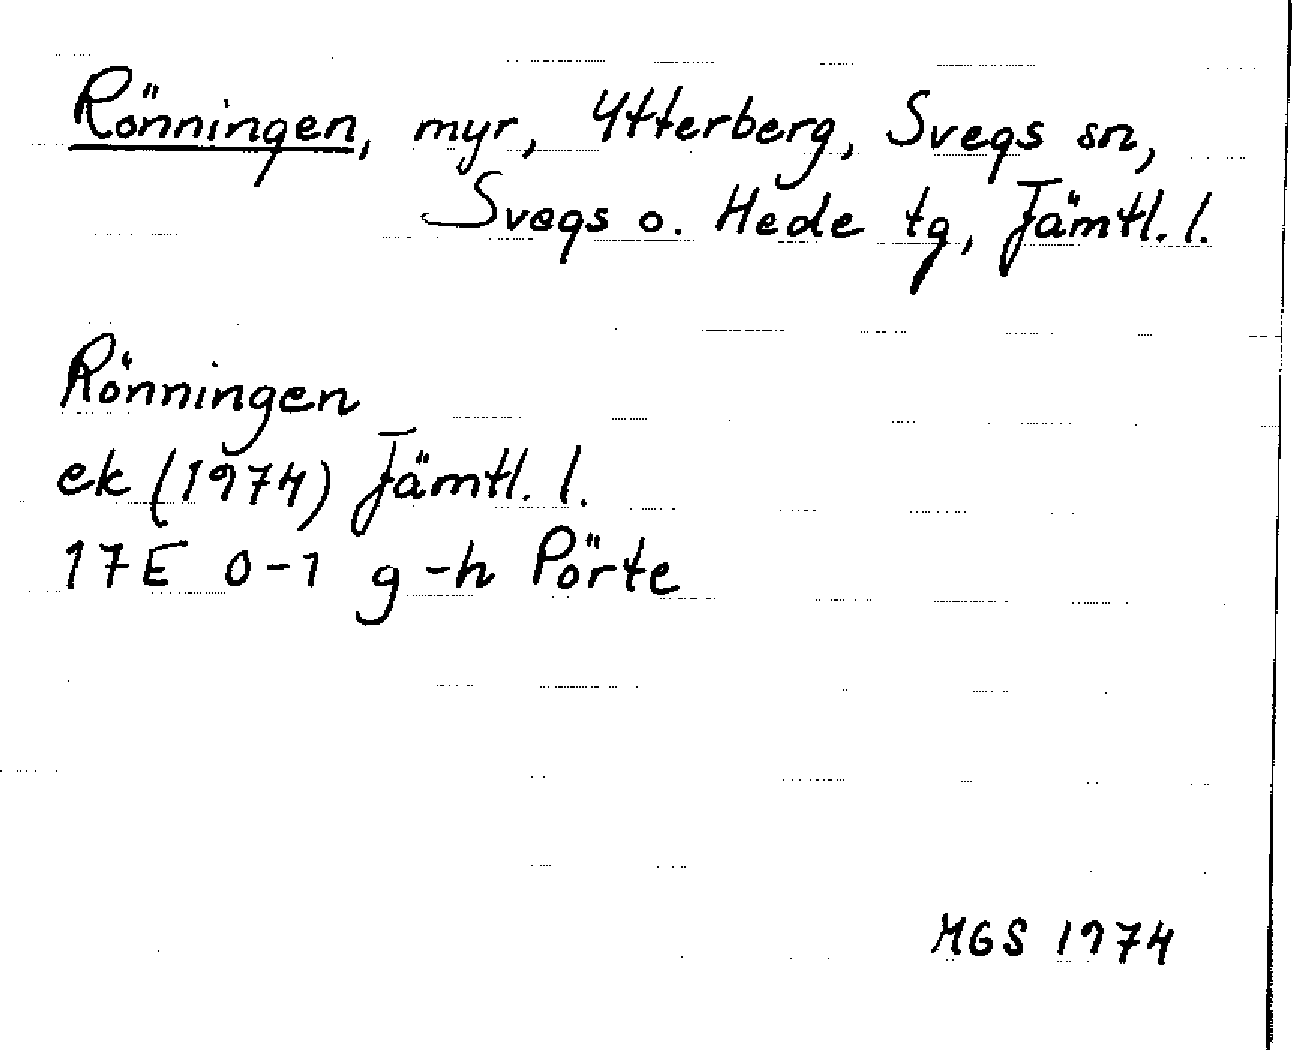 Rönningen, myr, Ytterberg, Svegs sn,
Svegs o. Hede tg, Jämtl. l.
Rönningen
ek (1974) Jämtl. l.
17E 0-1 g-h Pörte
MGS 1974